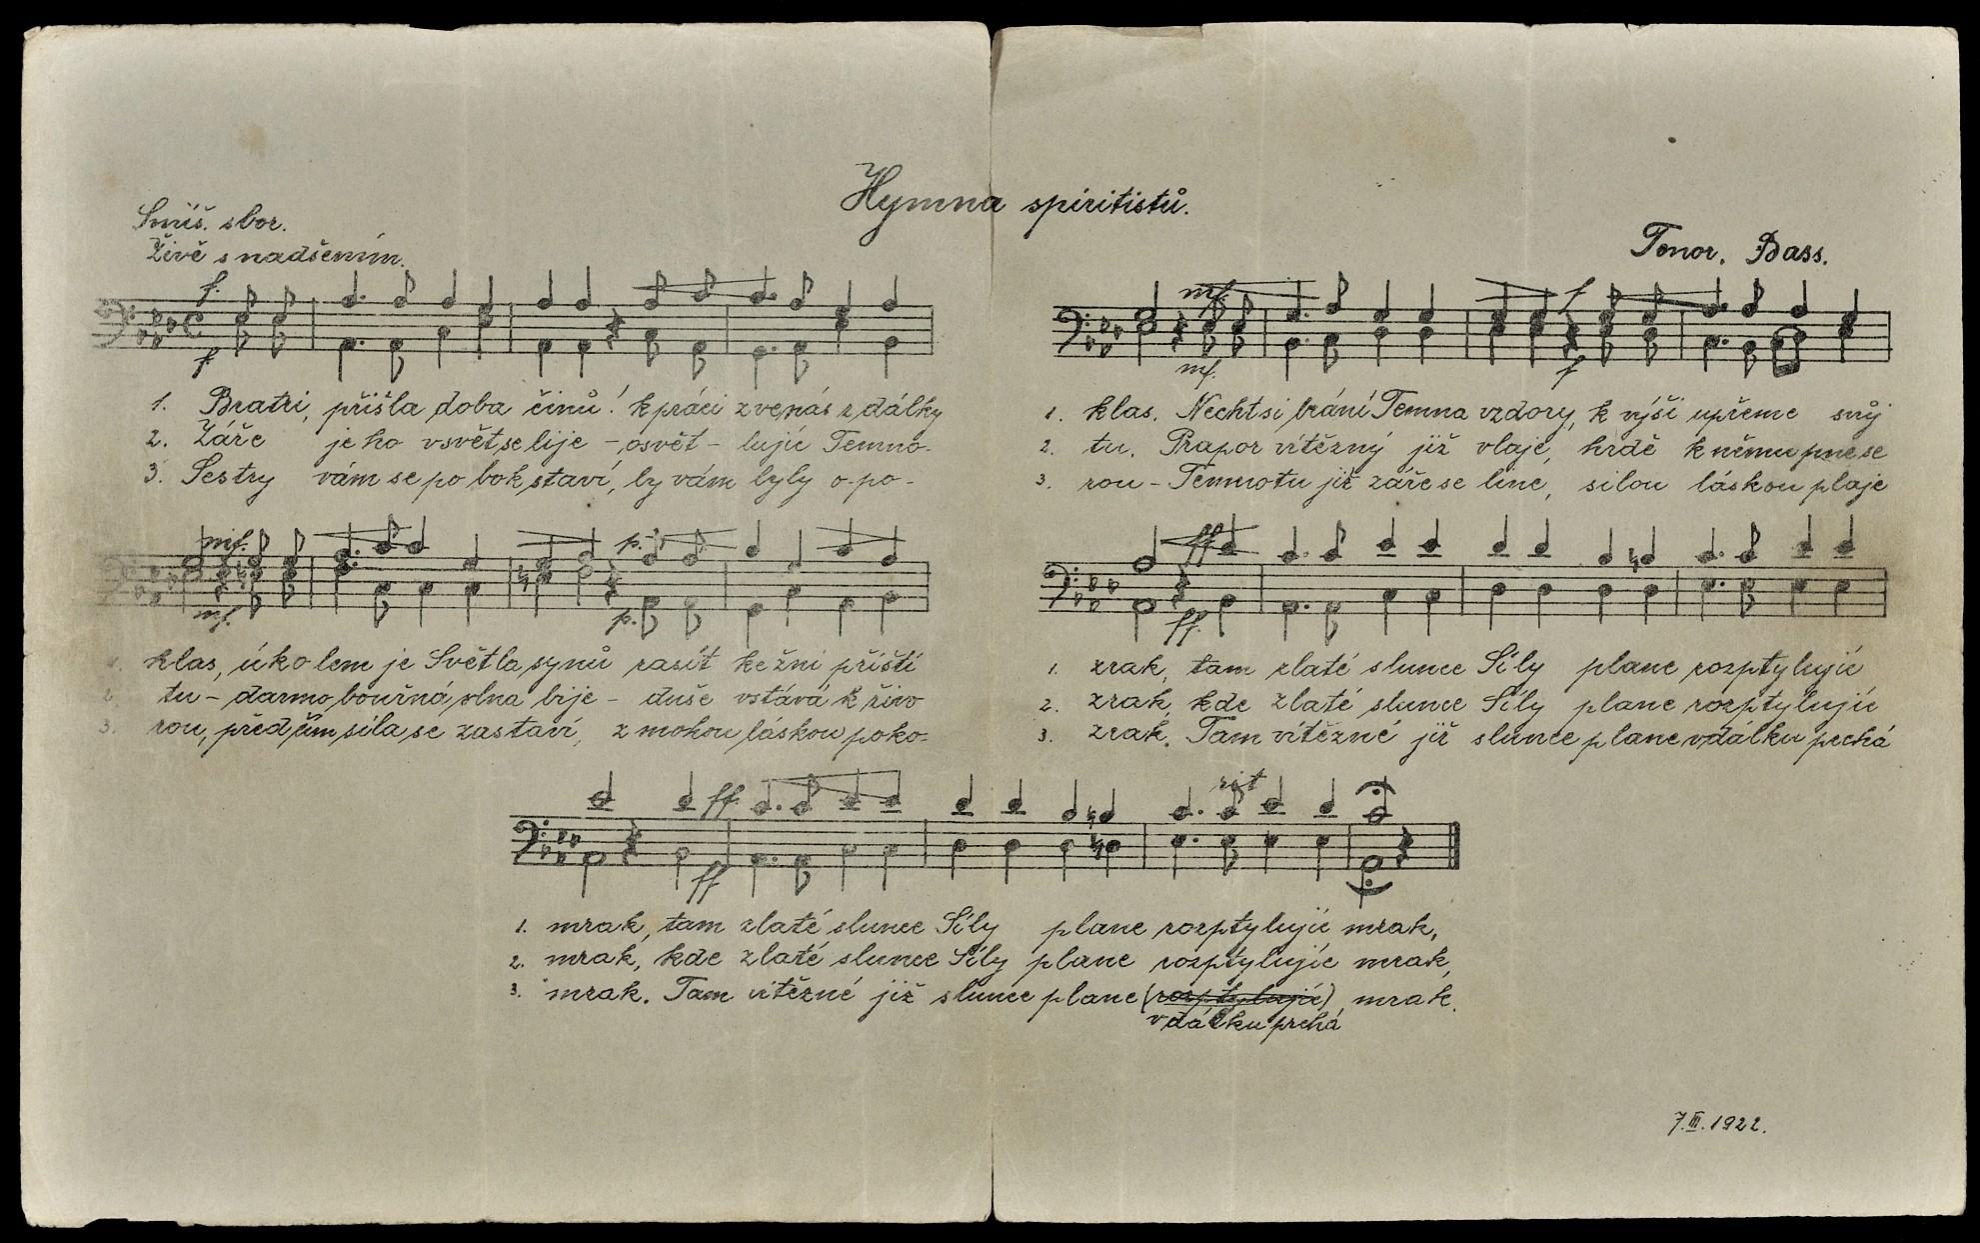 Hymna spiritistů.
Smíš. sbor.
Živě s nadšením.
Tenor. Bass.
f.
f
1. Bratři, přišla doba činů! k práci zve nás z dálky
2. Záře jeho v svět se lije – osvět – lujíc Temno-
3. Sestry vám se po bok staví, by vám byly o-po-
mf. f
mf. f
1. hlas. Nechť si brání Temna vzdory, k výši upřeme svůj
2. tu. Prapor vítězný již vlaje, hrdě k němu pne se
3. rou – Temnotu již záře se line, silou láskou plaje
mf. p.
mf. p.
klas, úkolem je Světla synů rasít ke žni příští
tu – darmo bouřná vlna bije – duše vstává k živo
3. rou, před čím síla se zastaví, zmohou láskou poko-
ff
ff.
1. zrak, tam zlaté slunce Síly plane rozptylujíc
2. zrak, kde zlaté slunce Síly plane rozptylujíc
3. zrak. Tam vítězné již slunce plane v dálku prchá
ff. rit
ff
1. mrak, tam zlaté slunce Síly plane rozptylujíc mrak,
2. mrak, kde zlaté slunce Síly plane rozptylujíc mrak,
3. mrak. Tam vítězné již slunce plane (rozptylujíc) mrak.
v dálku prchá
7.III.1922.